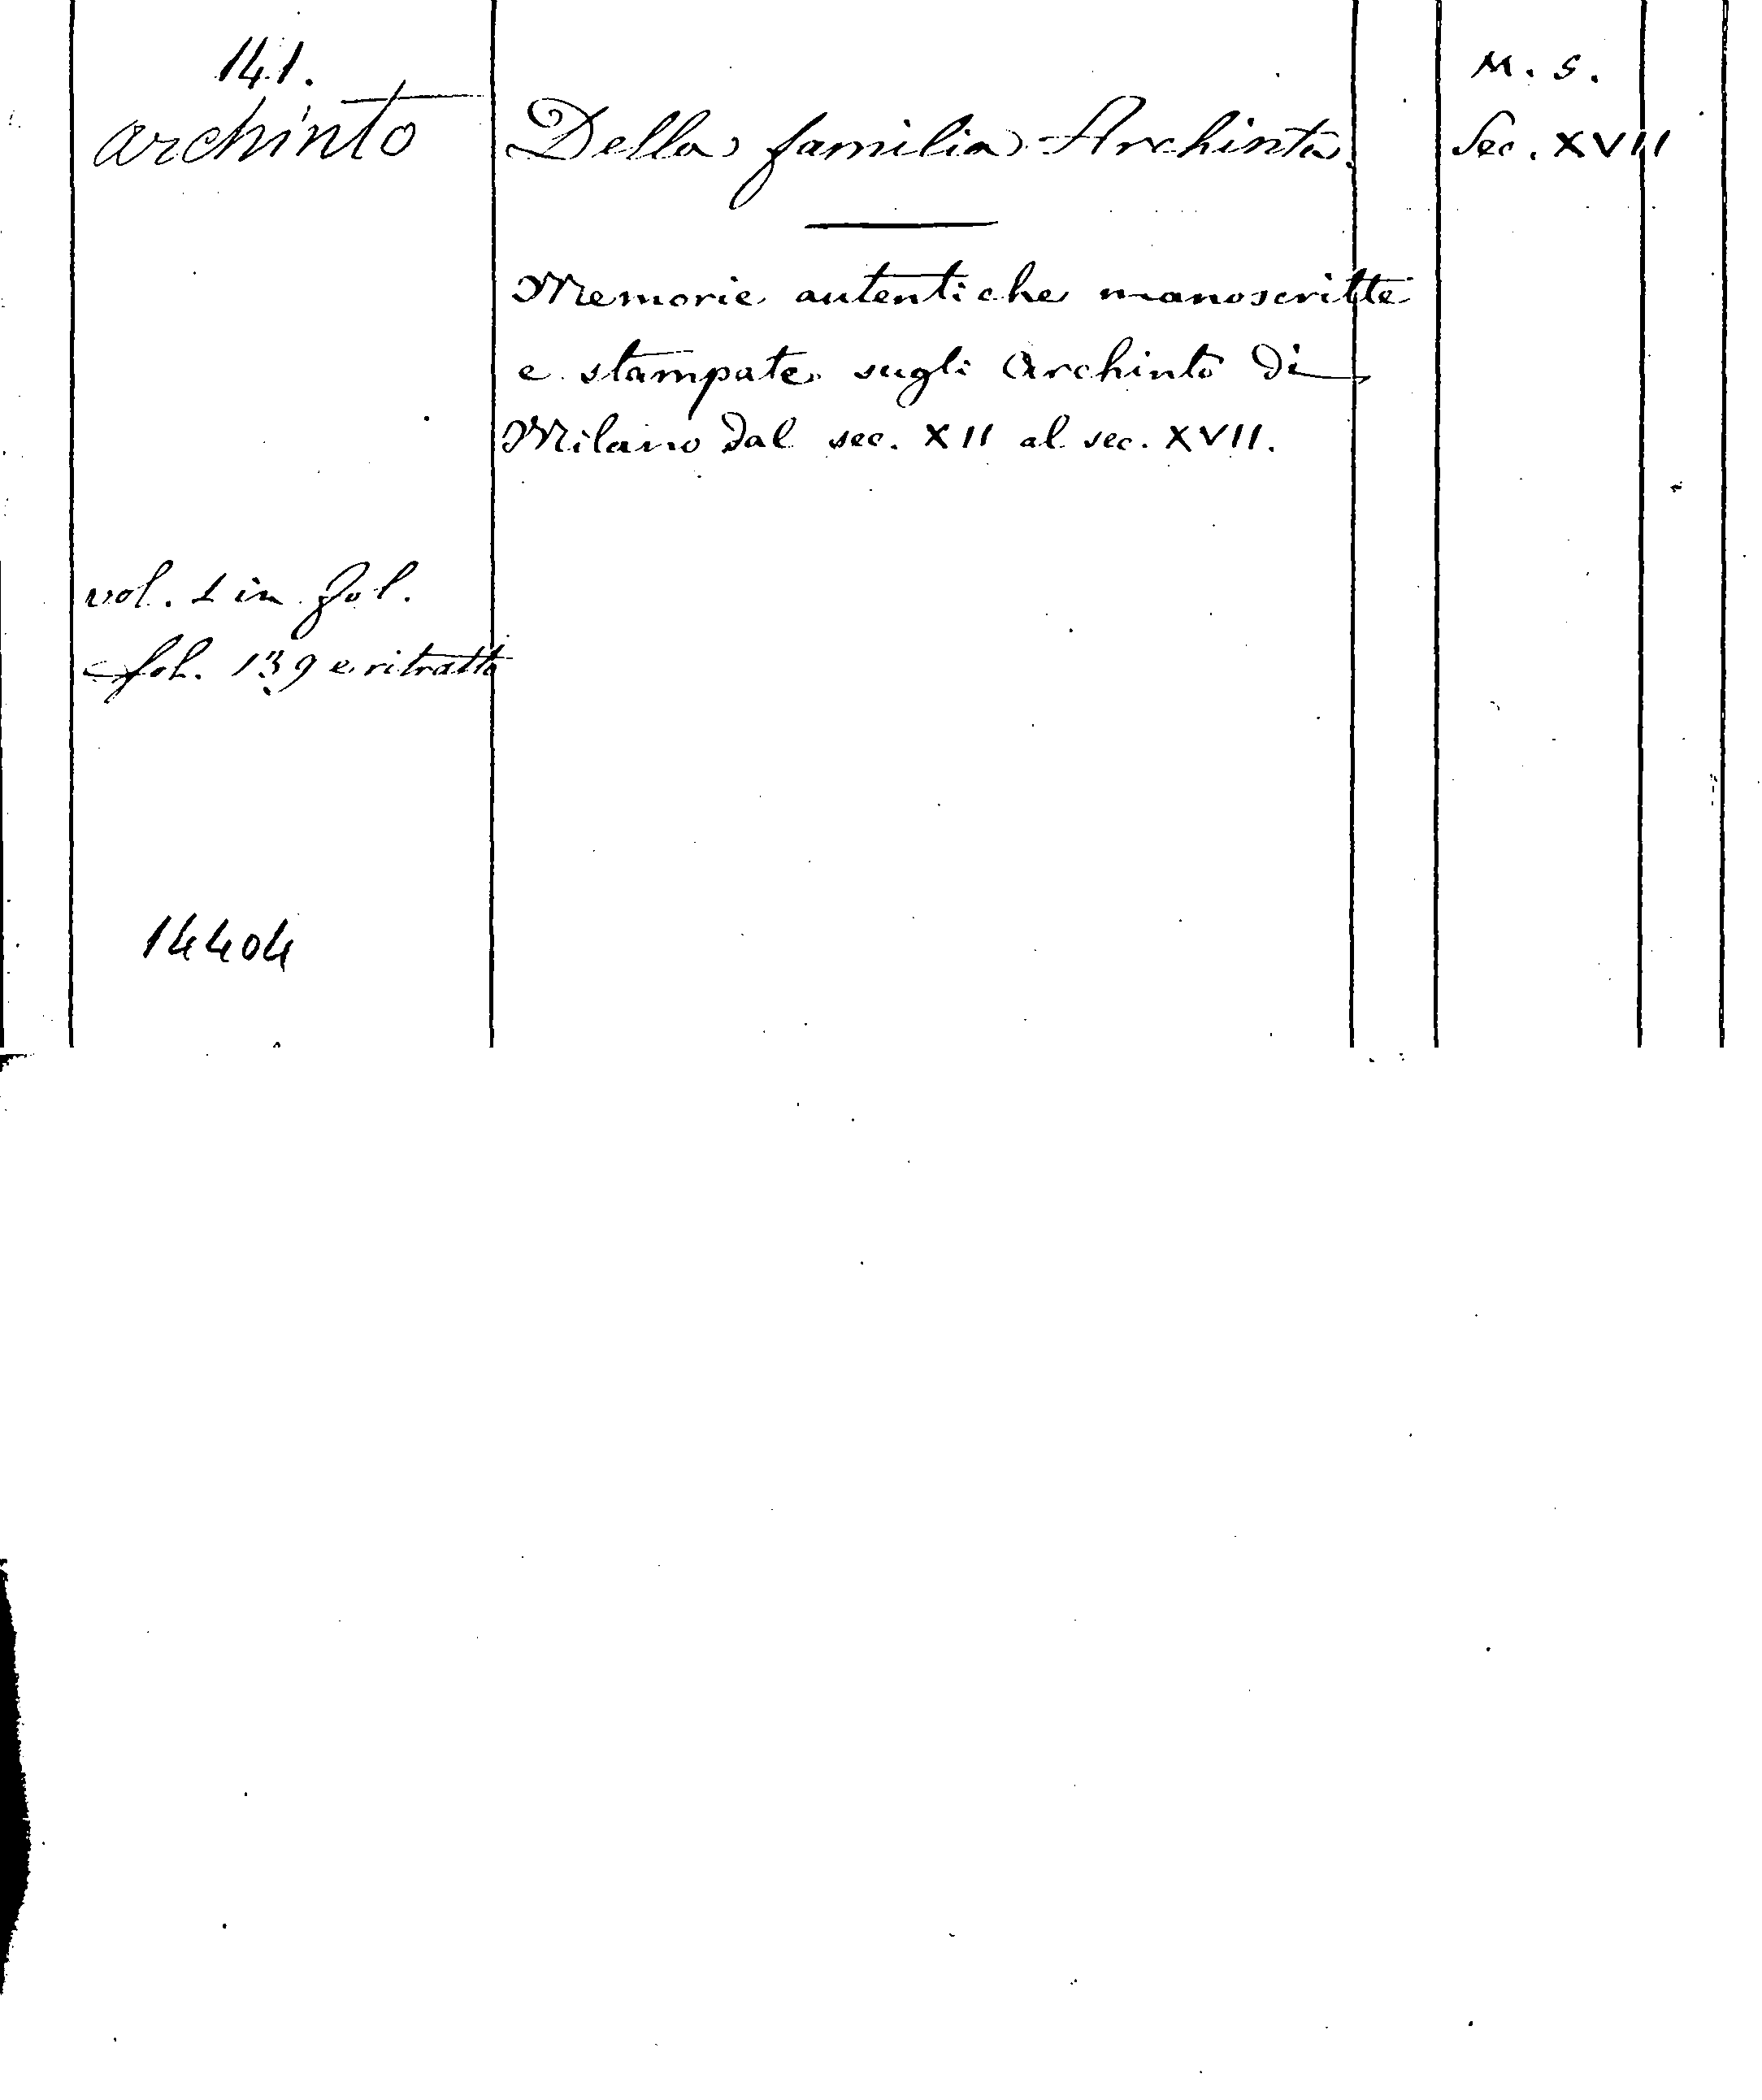 141.
Archinto
Della familia Archinta.
M. S.
Sec. XVII
Memorie autentiche manoscritte
e stampate sugli Archinto di
Milano dal sec. XII al sec. XVII.
vol. 1 in fol.
fol. 139 e ritratto
14404